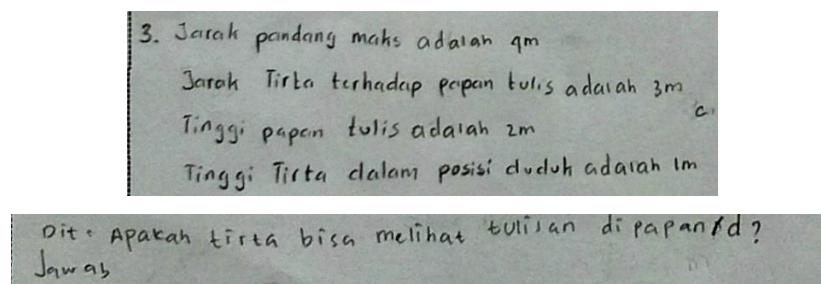 3. Jarak pandang maks adalah 4m
Jarak Tirta terhadap papan tulis adalah 3m
c.
Tinggi papan tulis adalah 2m
Tinggi Tirta dalam posisi duduk adalah 1m
Dit: Apakah tirta bisa melihat tulisan di papan d?
Jawab